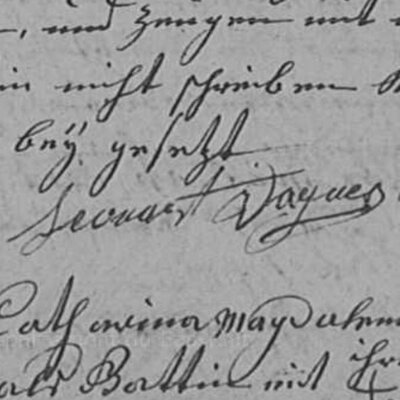 , und Zeugen mit
in nicht schreiben
bey gesetzt
Leonart Daques
Catharina Magdalen
als Battin mit ihr